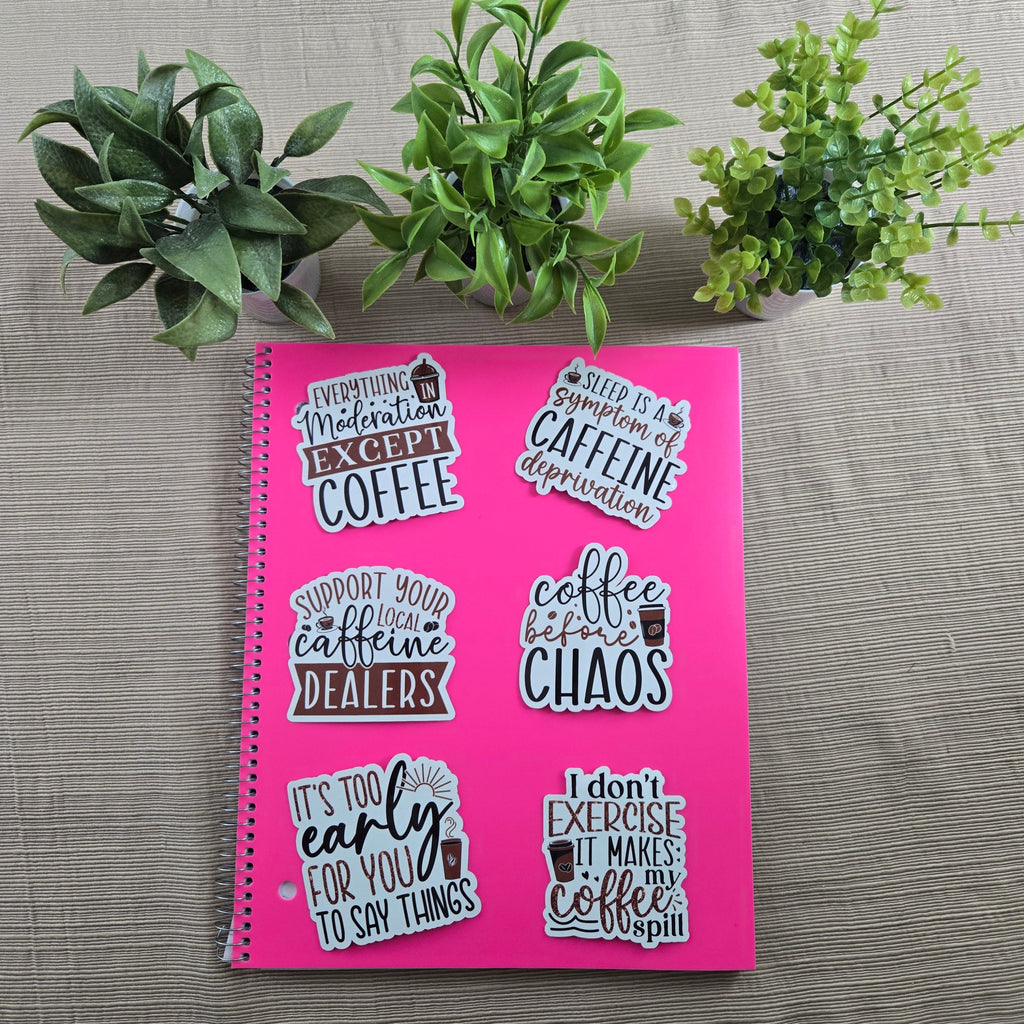 EVERYTHING
IN
Moderation
EXCEPT
COFFEE
SLEEP IS A
symptom of
CAFFEINE
deprivation
SUPPORT YOUR
LOCAL
caffeine
DEALERS
coffee
before
CHAOS
IT'S TOO
early
FOR YOU
TO SAY THINGS
I don't
EXERCISE
IT MAKES
my
coffee
spill